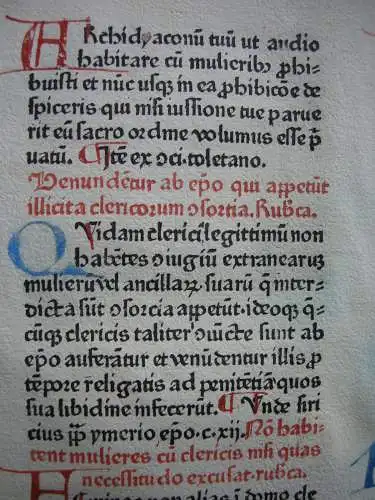 ARchidyaconū tuū ut audio
habitare cū mulierib; ꝓhi-
buisti et nūc usq; in ea ꝓhibicōe de
spiceris qui nisi iussione tue parue
rit eū sacro ordine volumus esse p̄
uatū. ¶Itē ex ↄci. toletano.
Uenundētur ab epō qui appetūt
illicita clericorum ↄsortia. Rubca.
QVidam clerici legittimū non
habētes ↄiugiū extranearuꝫ
mulierum vel ancillaꝝ suarū q̄ inter-
dicta sūt ↄsorcia appetūt. ideoqꝫ q̄-
cūqꝫ clericis taliter ↄiūcte sunt ab
epō auferātur et venūdentur illis ꝓ
tēpore religatis ad penitētiā quos
sua libidine infecerūt. ¶Vnde siri
cius pp̄ ymerio epō. c. xij. Nō habi-
tent mulieres cū clericis nisi quas
necessitudo excusat. rubca.